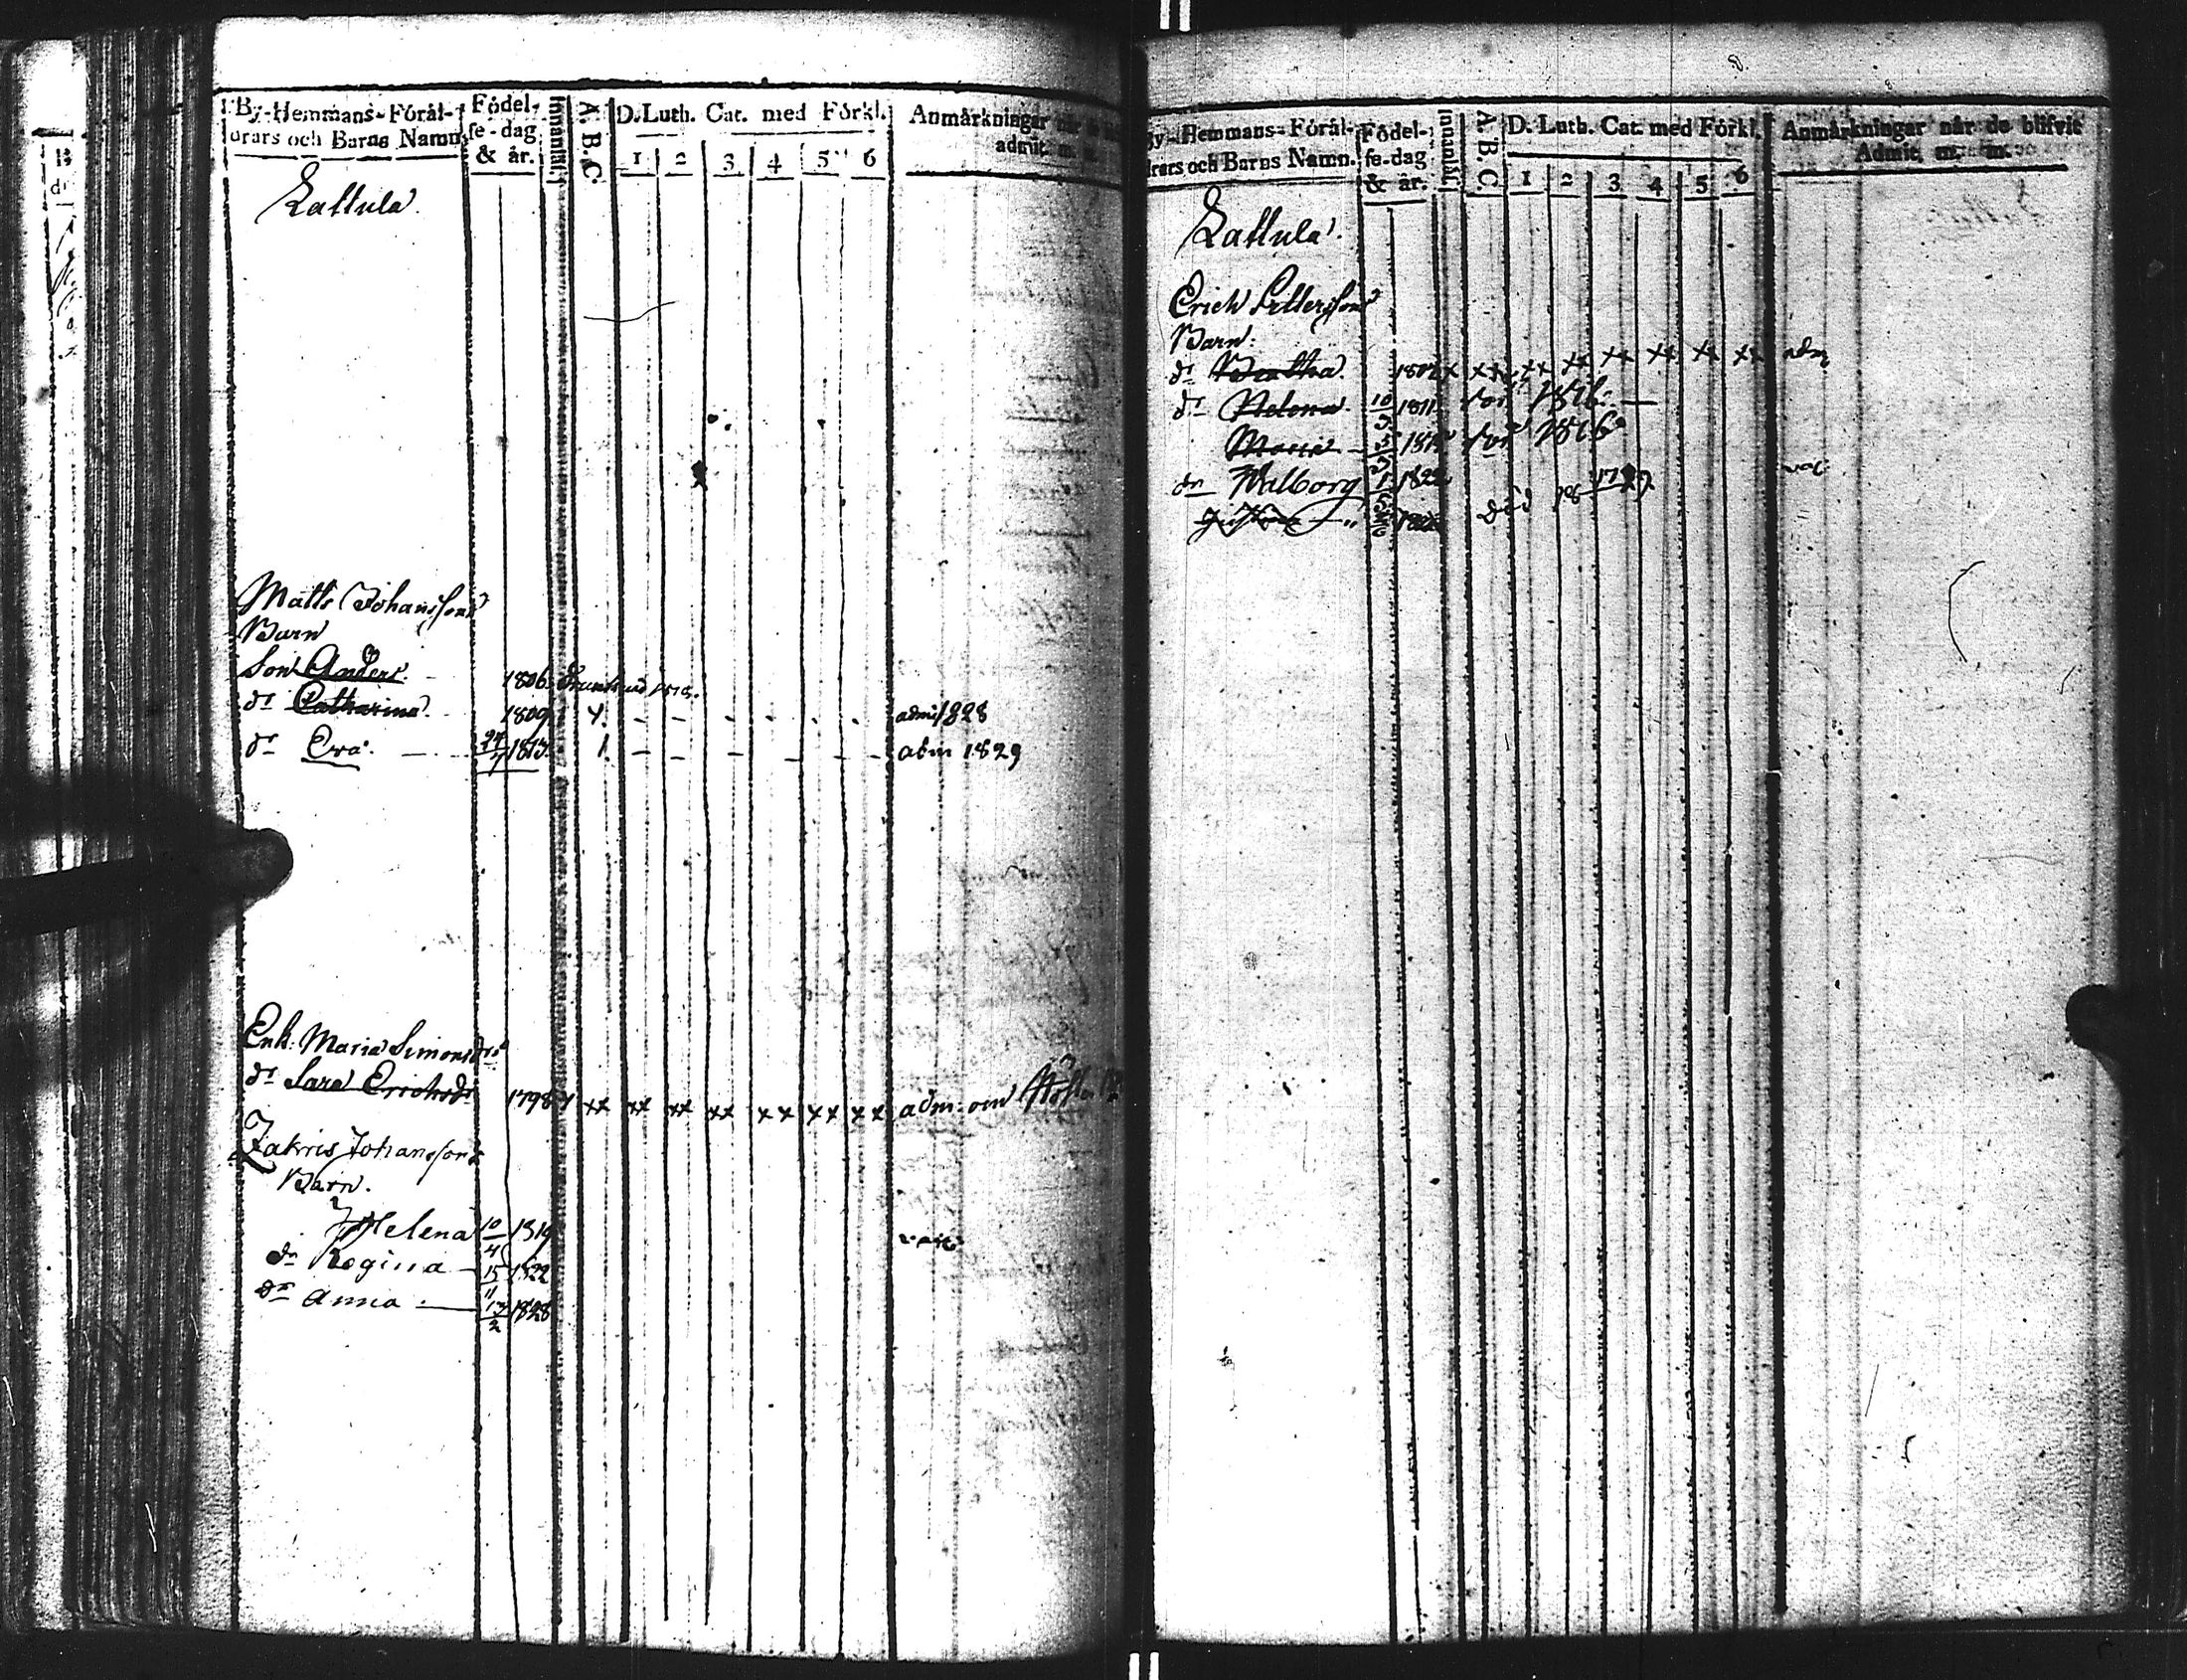 By-Hemmans-Föräl-
drars och Barns Namn.
Födel-
se-dag
& år.
Innantill.
A. B. C.
D. Luth. Cat. med Förkl.
1 2 3 4 5 6
Anmärkningar när
admit. m.
Lattula.
Matts Johanssons
Barn
Son Anders. 1806.
dr Catharina. 1809 adm 1828
dr Eva. 24/7 1813. adm 1829
Enk: Maria Simonsdr
dr Sara Erichsdr 1798 x xx xx xx xx xx xx xx adm:
Zakris Johanssons
Barn.
Helena 10/4 1819 vac:
dr Regina 15/11 1822
dr Anna 17/2 1828
By-Hemmans-Föräl-
drars och Barns Namn.
Födel-
se-dag
& år.
Innantill.
A. B. C.
D. Luth. Cat. med Förkl.
1 2 3 4 5 6
Anmärkningar när de blifvit
Admit. m. m.
Lattula.
Erich Pettersson
Barn:
dr x xx xx xx xx xx xx xx adm
dr Helena. 10/3 1811
Maria
dr Walborg 1822 vac:
död